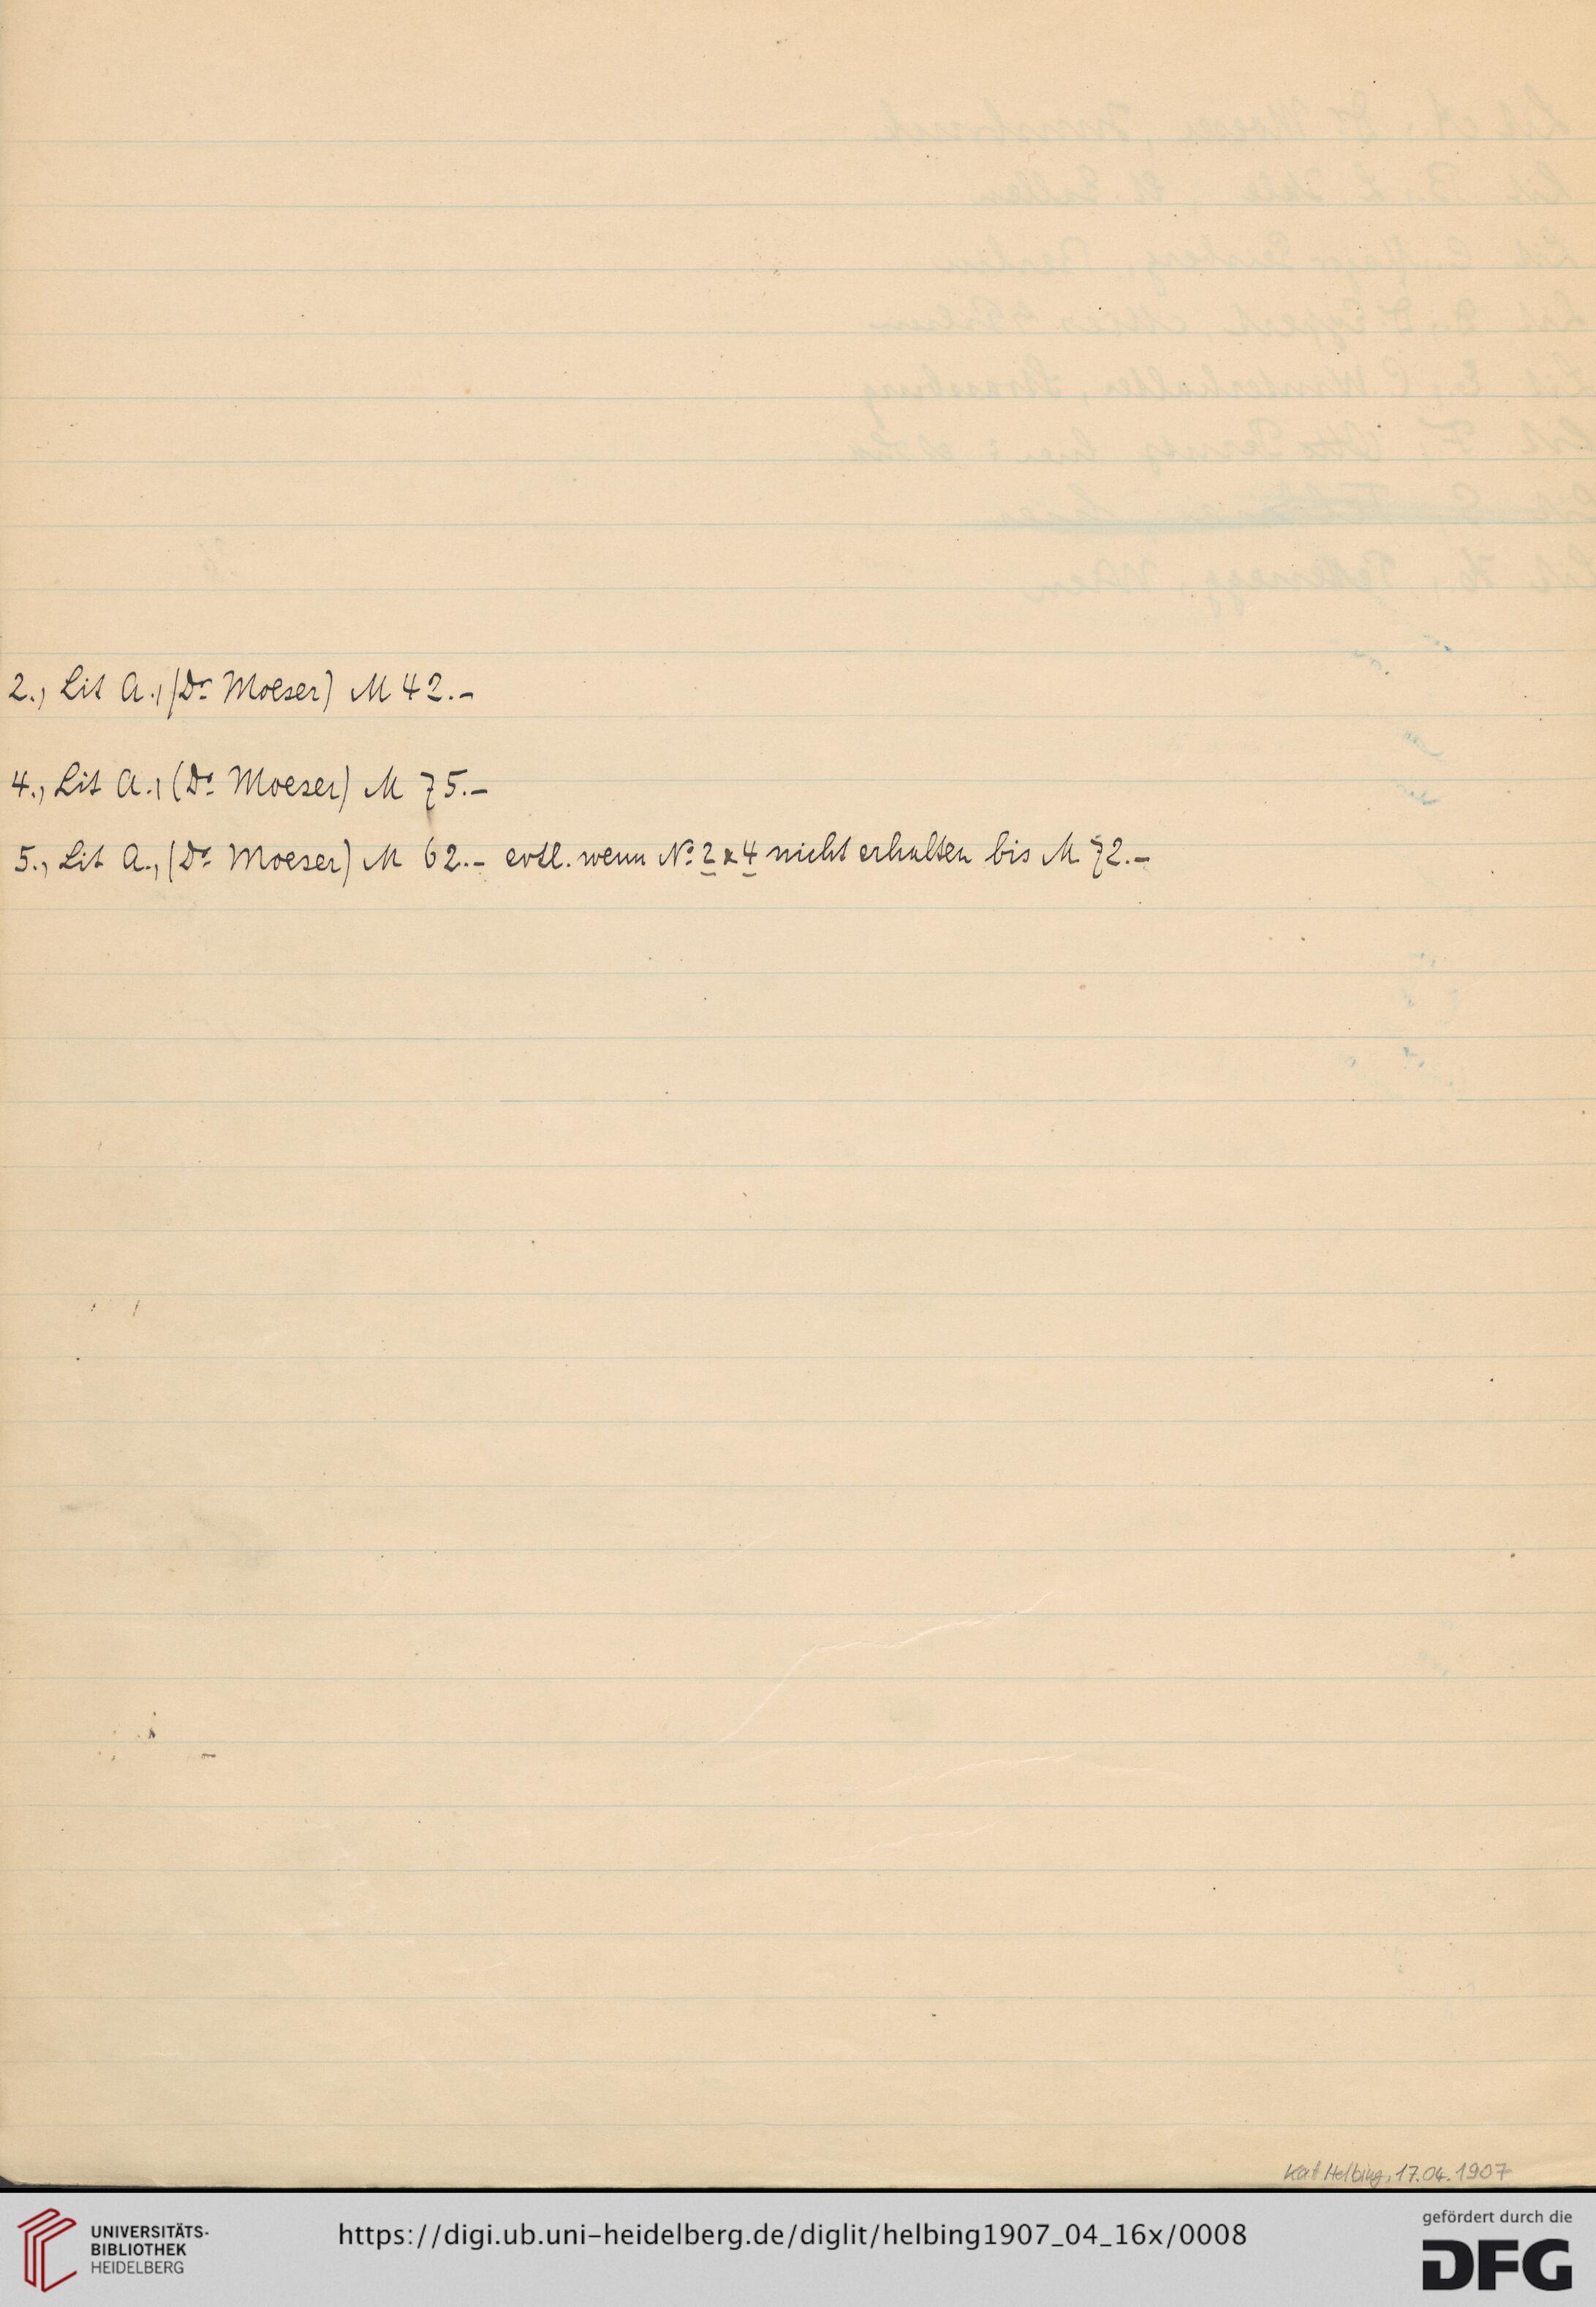 2., Lit A., (Dr Moeser) M 42.-
4., Lit A., (Dr Moeser) M 75.-
5., Lit A., (Dr Moeser) M 62.- evtl. wenn No 2 & 4 nicht erhalten bis M 72.-
Kat Helbing, 17.04.1907
UNIVERSITÄTS-
BIBLIOTHEK
HEIDELBERG
https://digi.ub.uni-heidelberg.de/diglit/helbing1907_04_16x/0008
gefördert durch die
DFG